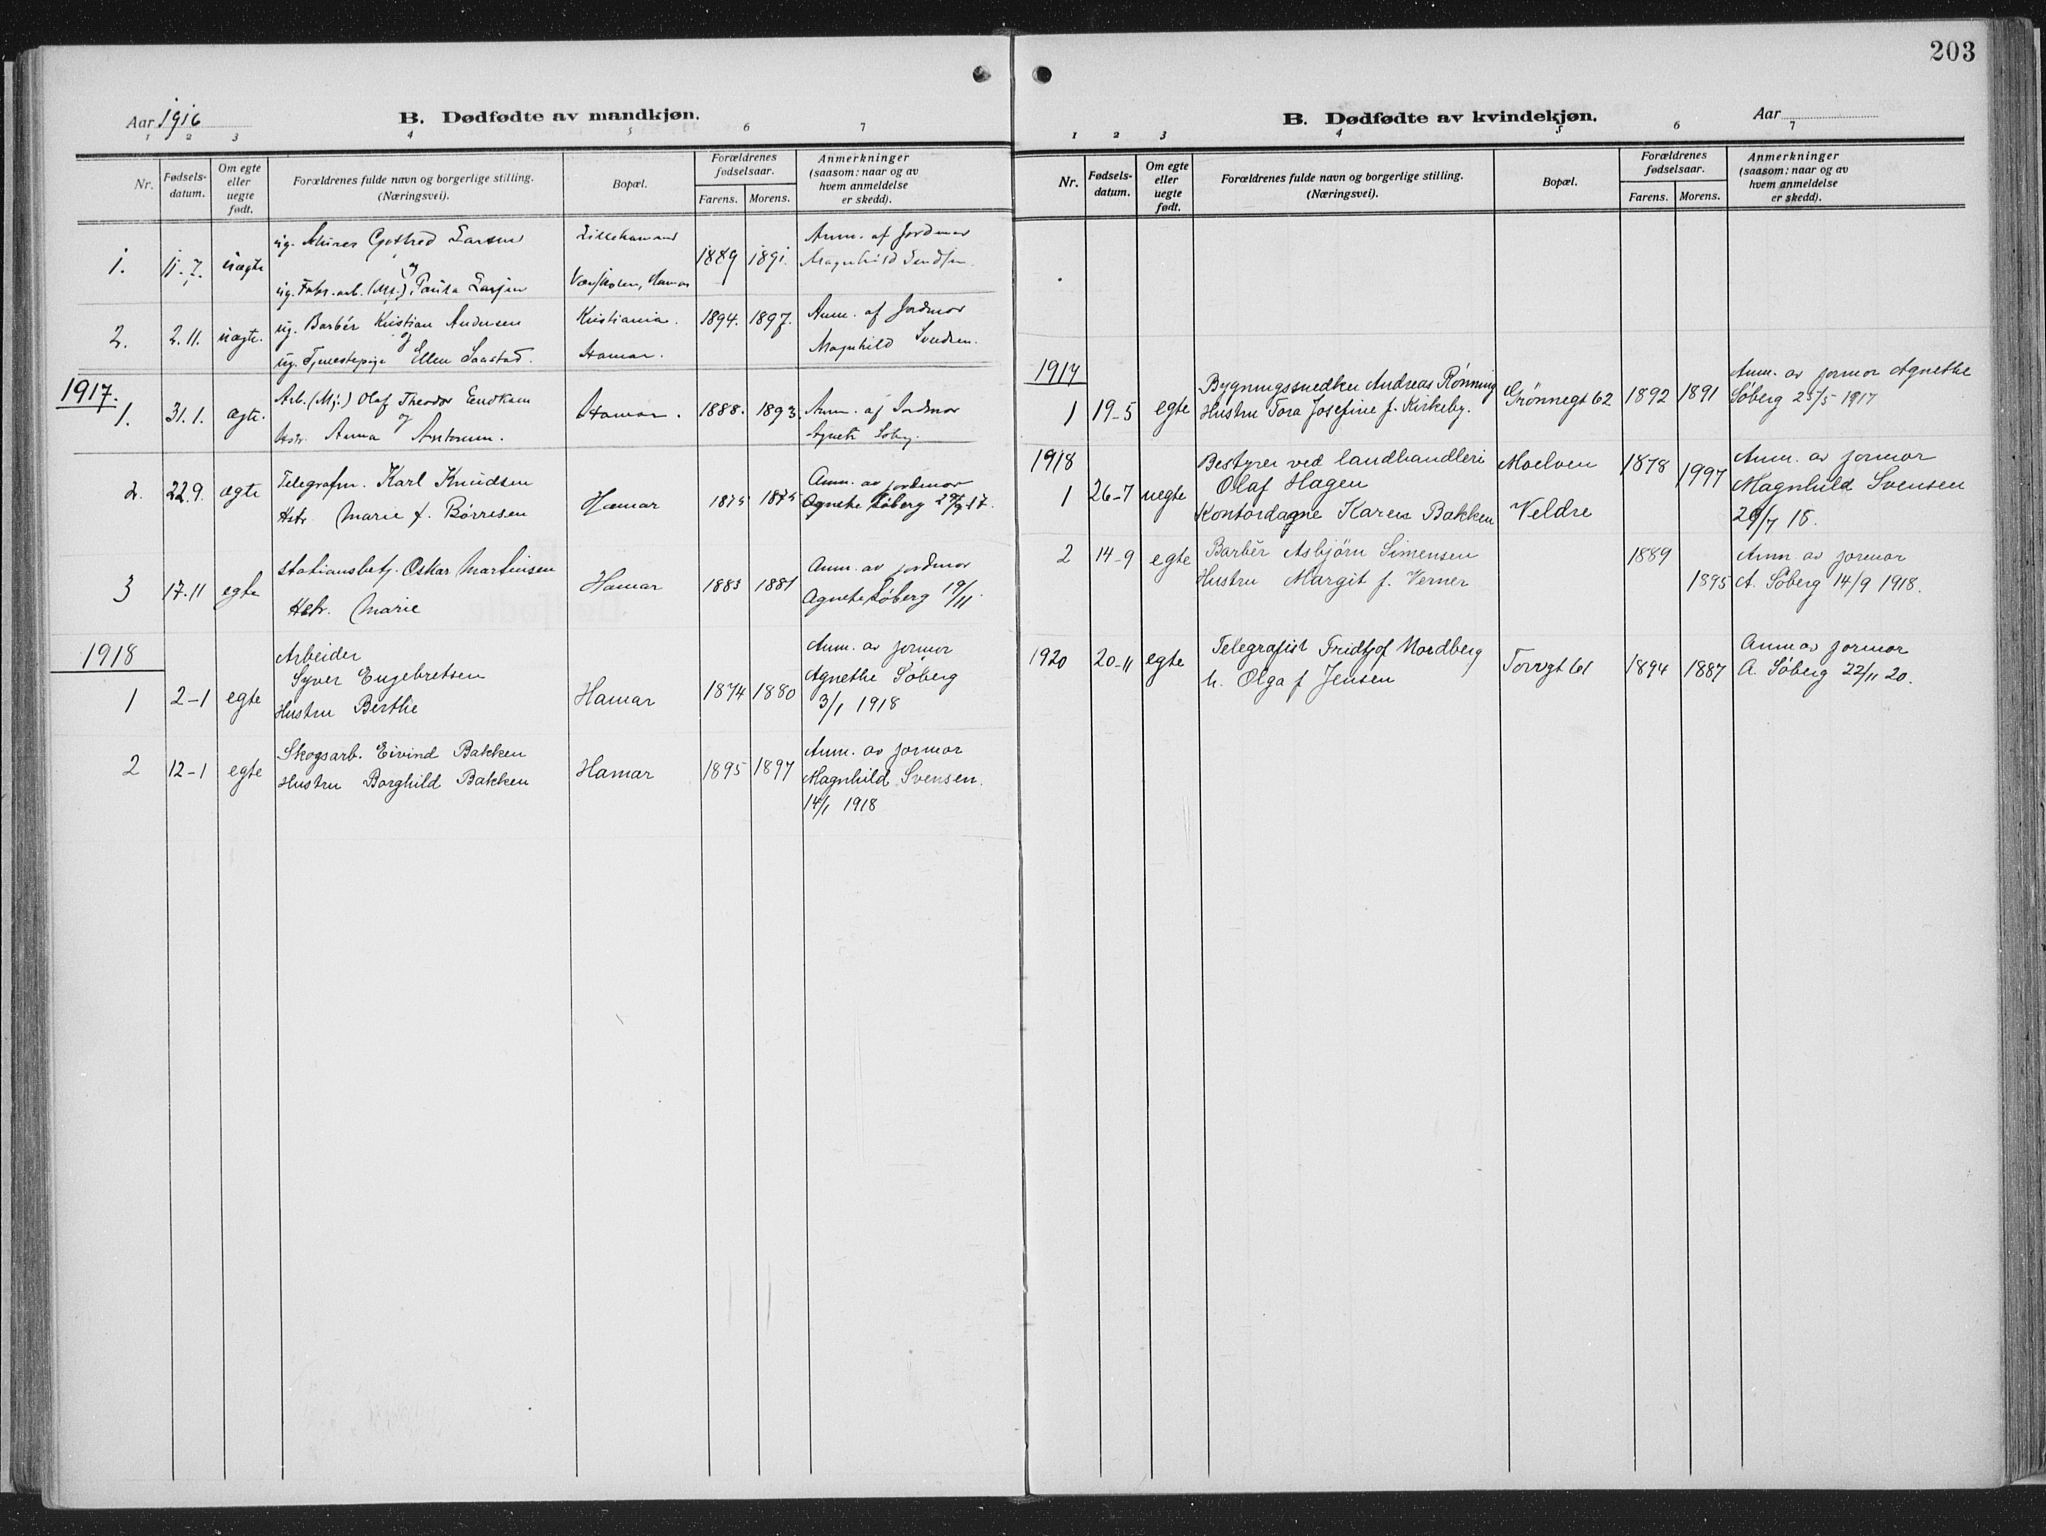 203
Aar 1916
B. Dødfødte av mandkjøn.
1 2 3 4 5 6 7
Nr.
Fødsels-
datum.
Om egte
eller
uegte
født.
Forældrenes fulde navn og borgerlige stilling.
(Næringsvei).
Bopæl.
Forældrenes
fødselsaar.
Farens. Morens.
Anmerkninger
(saasom: naar og av
hvem anmeldelse
er skedd).
ug. Gothred Larsen Lillehammer Anm. af Jordmor
1. 11.7. uægte 1889 1891. Magnhild
ug. Fabr.arb. (Mj.) Paula Larsen Hamar
ug. Barbér Kristian Andersen Kristiania. 1894. 1897. Anm. af Jordmor
2. 2.11. uægte. og
ug. Tjenestepige Ellen Saastad. Hamar. Magnhild Svendsen.
1917.
Arb. (Mj.) Olaf Theodor
1. 31.1. ægte. og Hamar. 1888. 1893. Anm. af Jordmor
Hstr. Anna Agnete Søberg.
Telegrafm. Karl Knudsen Anm. av jordmor
2. 22.9. ægte Hamar 1875 1875 Agnete Søberg 17.
Hstr. Marie f. Børresen
Stationsbetj. Oskar Martinsen Anm. av jordmor
3 17-11 egte Hamar 1883 1881 Agnete Søberg 19/11.
Hstr. Marie
1918
Arbeider Anm. av jormor
Syver Engebretsen Agnethe Søberg
1 2-1 egte Hamar 1874 1880
Hustru Berthe 3/1 1918
Skogsarb. Eivind Bakken Anm. av jormor
2 12-1 egte Hamar 1895 1897
Hustru Borghild Bakken Magnhild Svensen.
14/1 1918
B. Dødfødte av kvindekjøn.
Aar
1 2 3 4 5 6 7
Nr.
Fødsels-
datum.
Om egte
eller
uegte
født.
Forældrenes fulde navn og borgerlige stilling.
(Næringsvei).
Bopæl.
Forældrenes
fødselsaar.
Farens. Morens.
Anmerkninger
(saasom: naar og av
hvem anmeldelse
er skedd).
1917
Bygningssnedker Andreas Rønning Grønnegt 62 1892 1891 Anm. av jormor Agnethe
1 19-5 egte Hustru Tora Josefine f. Kirkeby. Søberg 25/5 1917
1918
Bestyrer ved landhandleri Moelven 1878 1997 Anm. av jormor
Olaf Hagen Magnhild Svensen
1 26-7 uegte Kontordame Karen Bakken Veldre 26/7 18.
2 14-9 egte Barbér Asbjørn Simensen 1889 Anm av jormor
Hustru Margit f. Verner 1895 A. Søberg 14/9 1918.
1920 20-11 egte Telegrafist Fridtjof Nordberg Torvgt 61 1894 1887 Anm av jormor
h. Olga f Jensen A. Søberg 22/11 20.